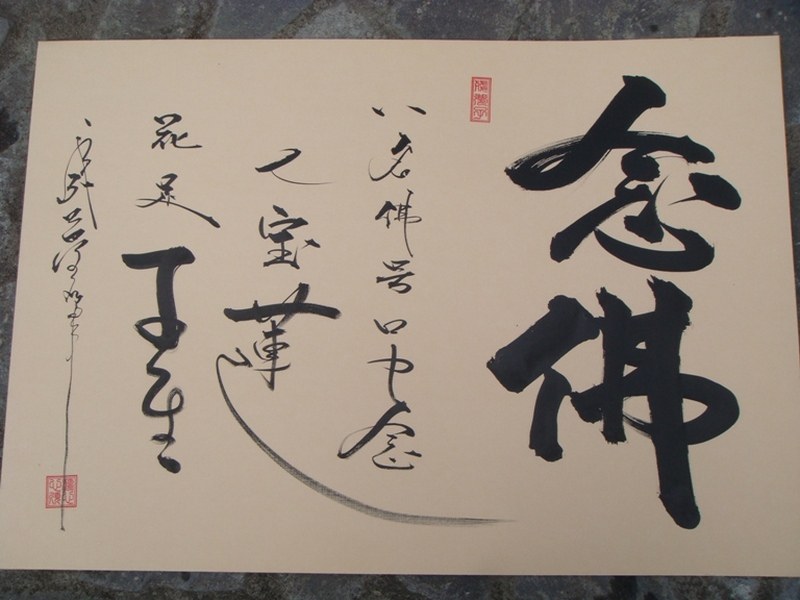 念佛
八名佛号口中念
七宝蓮
花足下生